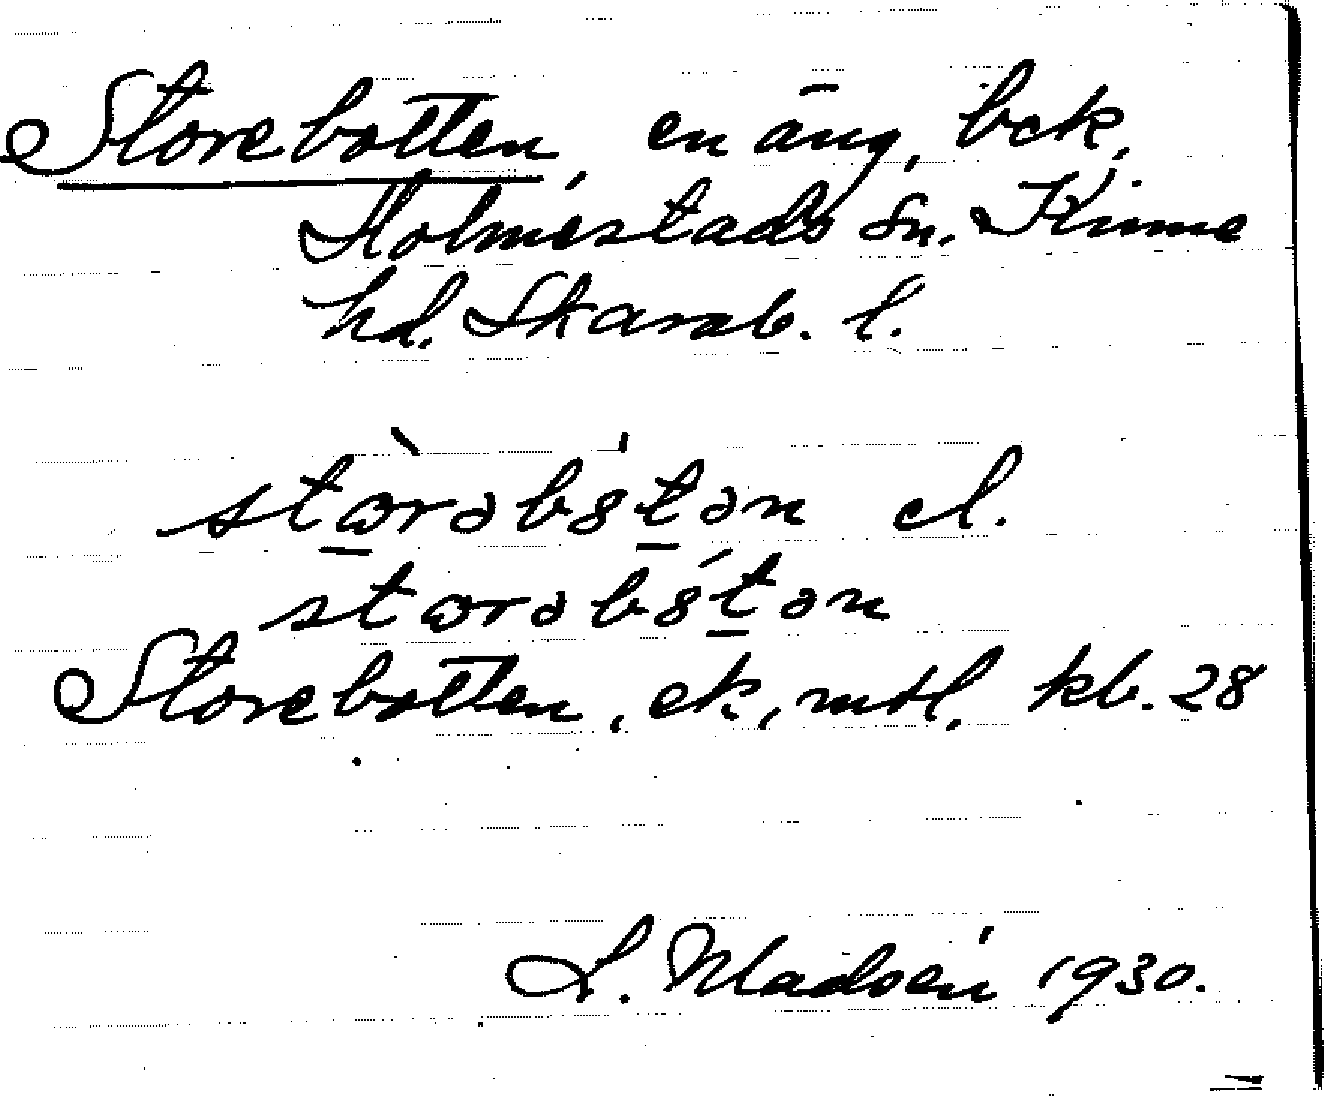 Storebotten, en äng, bck,
Holmestads sn. Kinne
hd. Skarab. l.
stωrəbȣtən el.
stωrəbȣtən
Storebotten, ek, mtl. kb. 28
L. Madsén 1930.